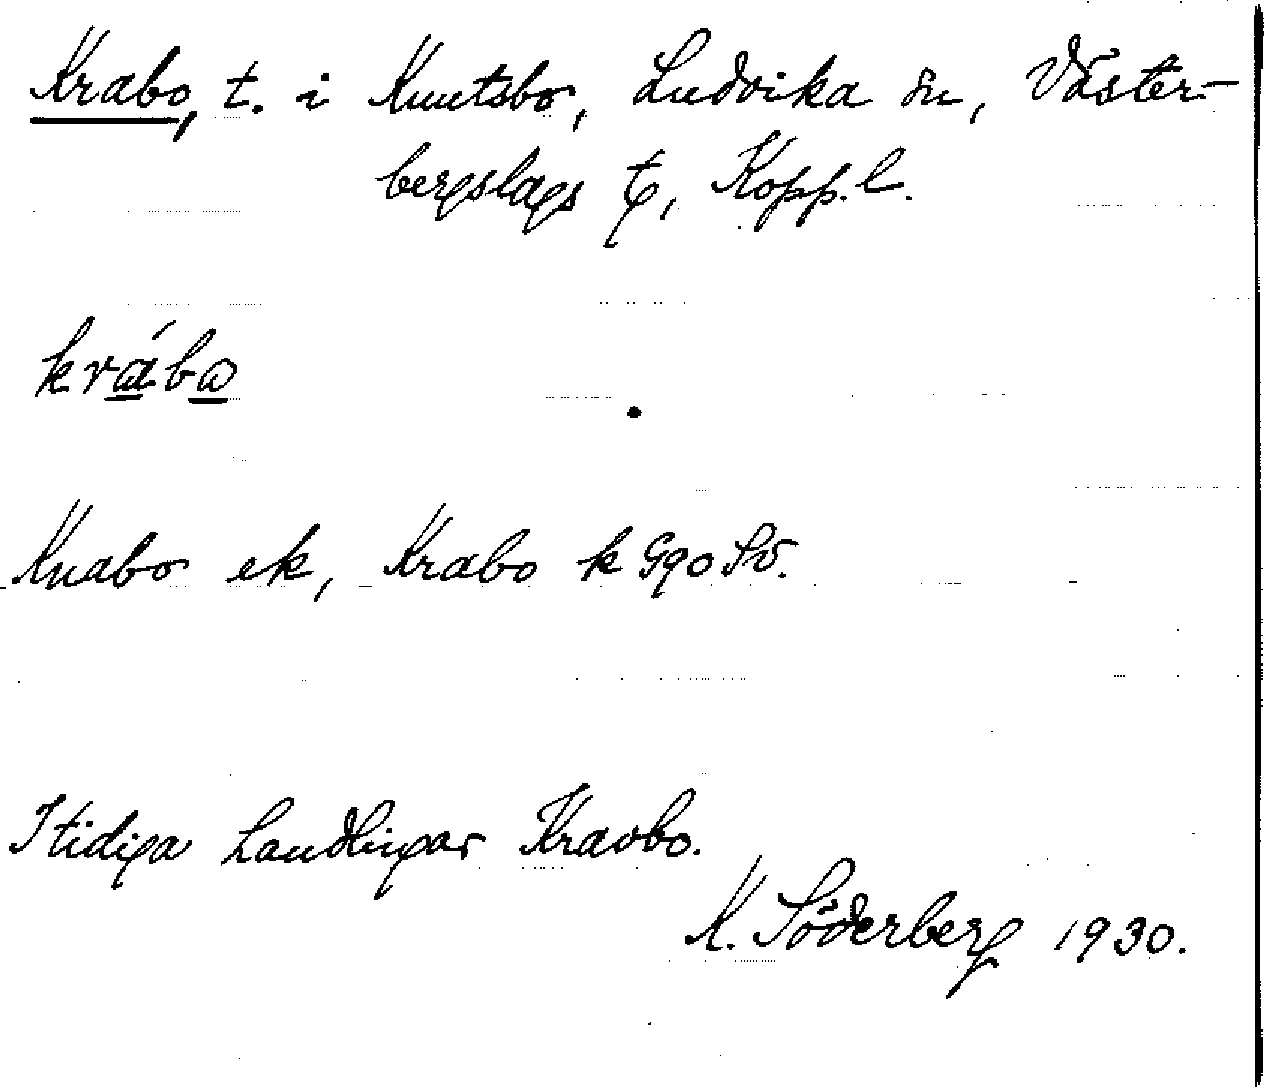 Krabo, t. i Knutsbo, Ludvika sn, Väster-
bergslags t, Kopp. l.
krábo
Knabo ek, Krabo k G90 Sv.
I tidiga handlingar Kravbo.
K. Söderberg 1930.